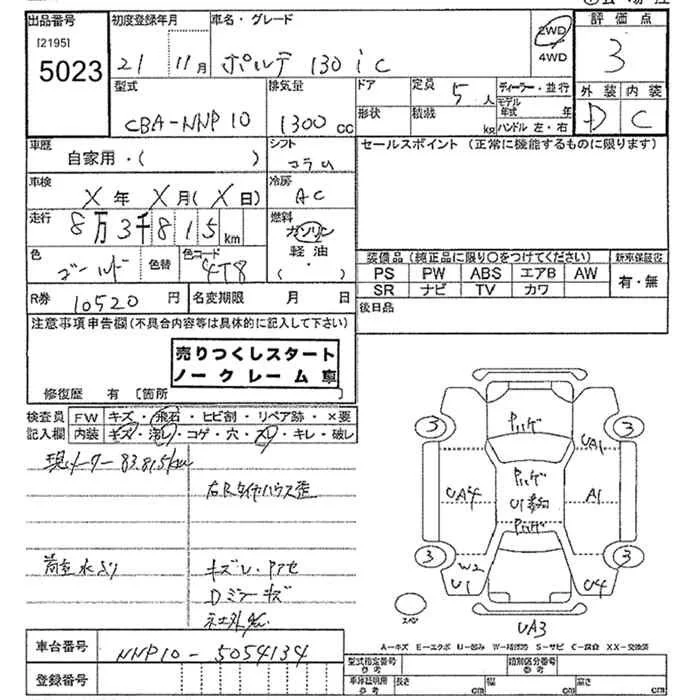 出品番号
[2195]
5023
初度登録年月
21 11月
車名・グレード
ポルテ 130iC
2WD
4WD
評価点
3
外装 内装
D C
型式
CBA-NNP10
排気量
1300 cc
ドア
定員
5 人
形状
積載
kg
ディーラー・並行
モデル年式 年
ハンドル 左・右
車歴
自家用・( )
シフト
コラム
セールスポイント (正常に機能するものに限ります)
車検
X 年 X 月( X 日)
冷房
AC
走行
8万3千815 km
燃料
ガソリン
軽油
( ・ )
色
ゴールド
色替
色コード
4T8
装備品 (純正品に限り○をつけてください)
新車保証書
PS PW ABS エアB AW
SR ナビ TV カワ
有・無
R券 10520 円
名変期限 月 日
後日品
注意事項申告欄(不具合内容等は具体的に記入して下さい)
売りつくしスタート
ノークレーム車
修復歴 有 [箇所 ]
検査員
記入欄
FW キズ・飛石・ヒビ割・リペア跡・×要
内装 キズ・汚レ・コゲ・穴・スレ・キレ・破レ
現メーター 83,815km
右Rタイヤハウス歪
荷室水より
キズレ・アセ
Dミラーキズ
3
3
UA1
UA4
A1
3
3
W2
U1
U4
UA3
スペア
車台番号
NNP10-5054134
登録番号
A-キズ E-エクボ U-凹み W-補修跡 S-サビ C-腐食 XX-交換済
型式指定番号
参考
類別区分番号
参考
車庫証明用
参考
長さ cm
幅 cm
高さ cm